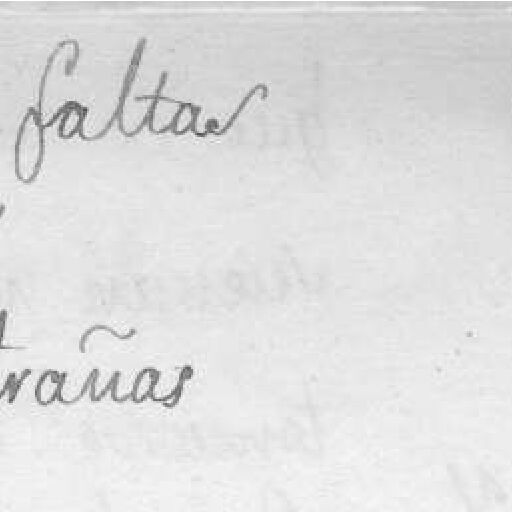 faltas
trañas